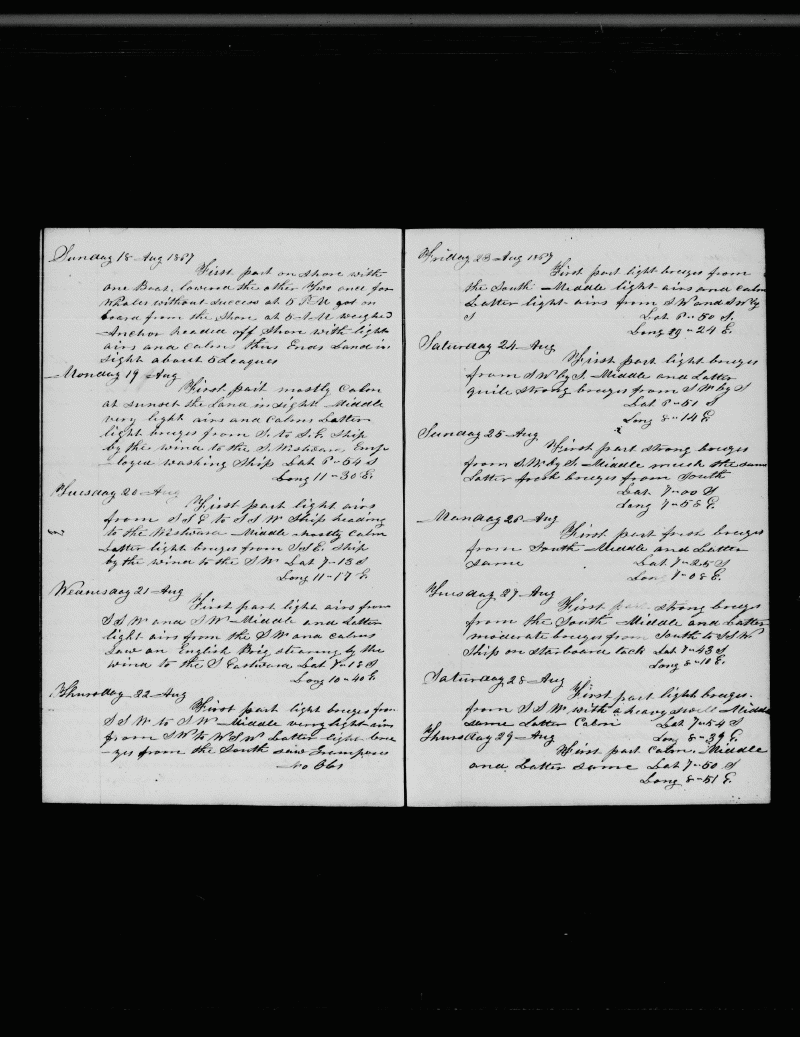 Sunday 18 Aug 1867
First part on shore with
one Boat. lowered the other Two once for
Whales without success at 5 P M got on
board from the shore at 5 A M weighed
Anchor headed off Shore with light
airs and calms Thus Ends Land in
sight about 5 Leagues
Monday 19 Aug
First part mostly Calm
at sunset the land in sight Middle
very light airs and Calms Latter
light breezes from S. to S.E. Ship
by the wind to the S. Westward Emp
loyed washing Ship Lat 6-54 S
Long 11-30 E.
Tuesday 20 Aug
First part light airs
from S S E to S S W Ship heading
to the Westward Middle mostly Calm
Latter light breezes from S S E. Ship
by the wind to the S W Lat 7-13 S
Long 11-17 E.
Wednesday 21 Aug
First part light airs from
S S W and S W Middle and Latter
light airs from the S W and calms
Saw an English Brig steering by the
wind to the S Eastward Lat 7-18 S
Long 10-40 E.
Thursday 22 Aug
First part light breezes from
S S W to S W Middle very light airs
from S W to W S W Latter light bree
-zes from the South saw Grampuses
No Obs
Friday 23 Aug 1867
First part light breezes from
the South Middle light airs and calm
Latter light airs from S W and S W by
S Lat 6-50 S.
Long 9-24 E.
Saturday 24 Aug
First part light breezes
from S W by S. Middle and Latter
quite strong breezes from S W by S
Lat 6-51 S
Long 8-14 E
Sunday 25 Aug
First part strong breezes
from S.W. by S. Middle much the same
Latter fresh breezes from South
Lat 7-00 S
Long 7-58 E.
Monday 26 Aug
First part fresh breezes
from South Middle and Latter
same Lat 7-25 S
Lon 7-08 E.
Tuesday 27 Aug
First part strong breezes
from the South Middle and Latter
moderate breezes from South to S S W
Ship on starboard tack Lat 7-43 S
Long 8-10 E.
Saturday 28 Aug
First part light breezes.
from S S W. with a heavy swell Middle
same Latter Calm Lat 7-54 S
Long 8-39 E.
Thursday 29 Aug
First part Calm. Middle
and Latter same Lat 7-50 S
Long 8-51 E.